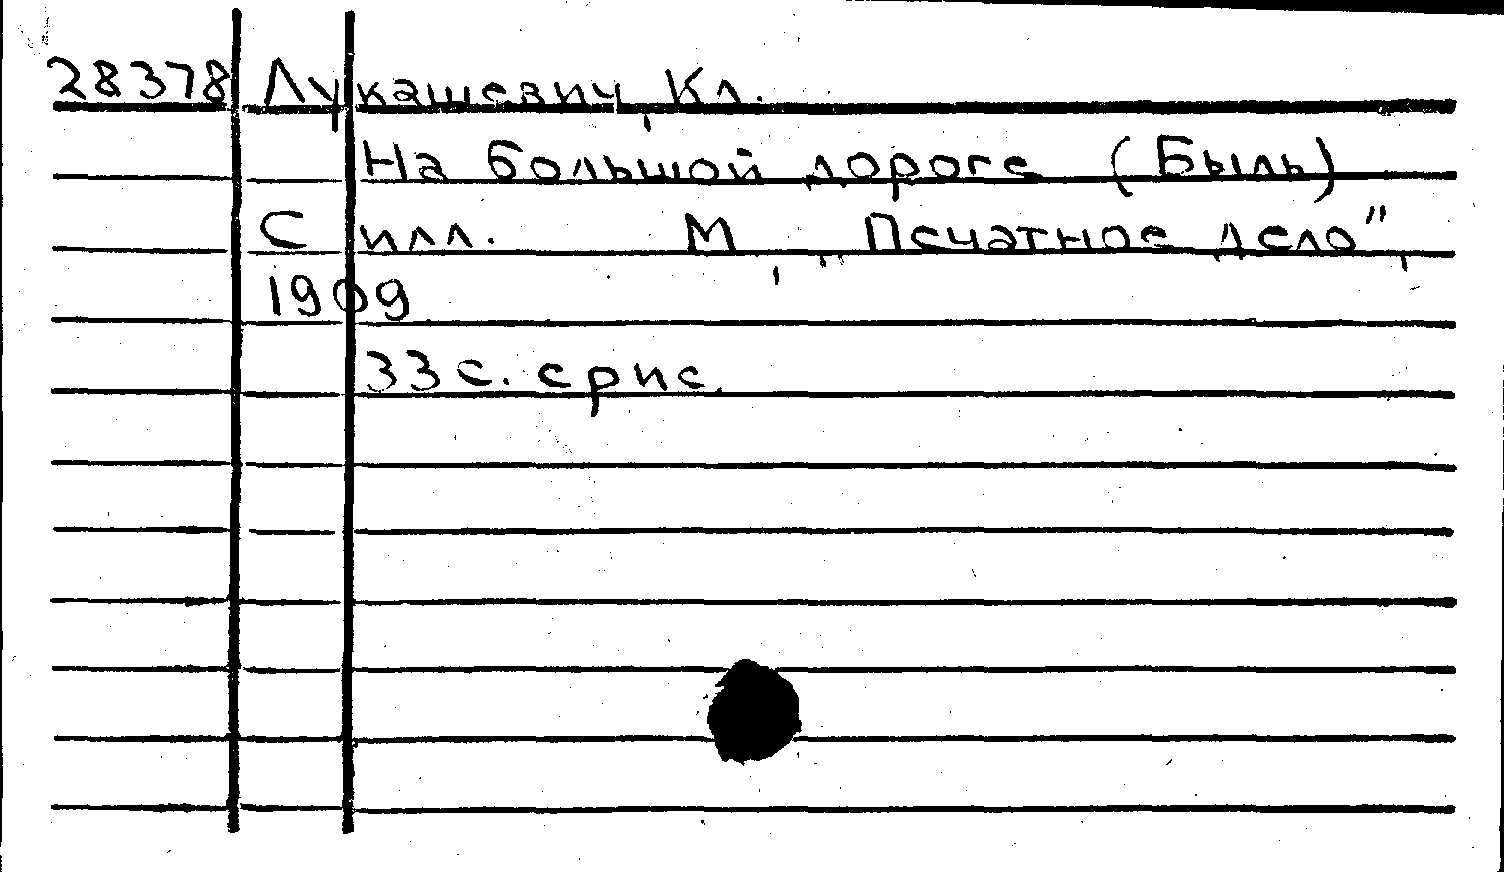 28378 Лукашевич, Кл.
На большой дороге (Быль)
С илл. М, „Печатное дело",
1909
33 с. с рис.